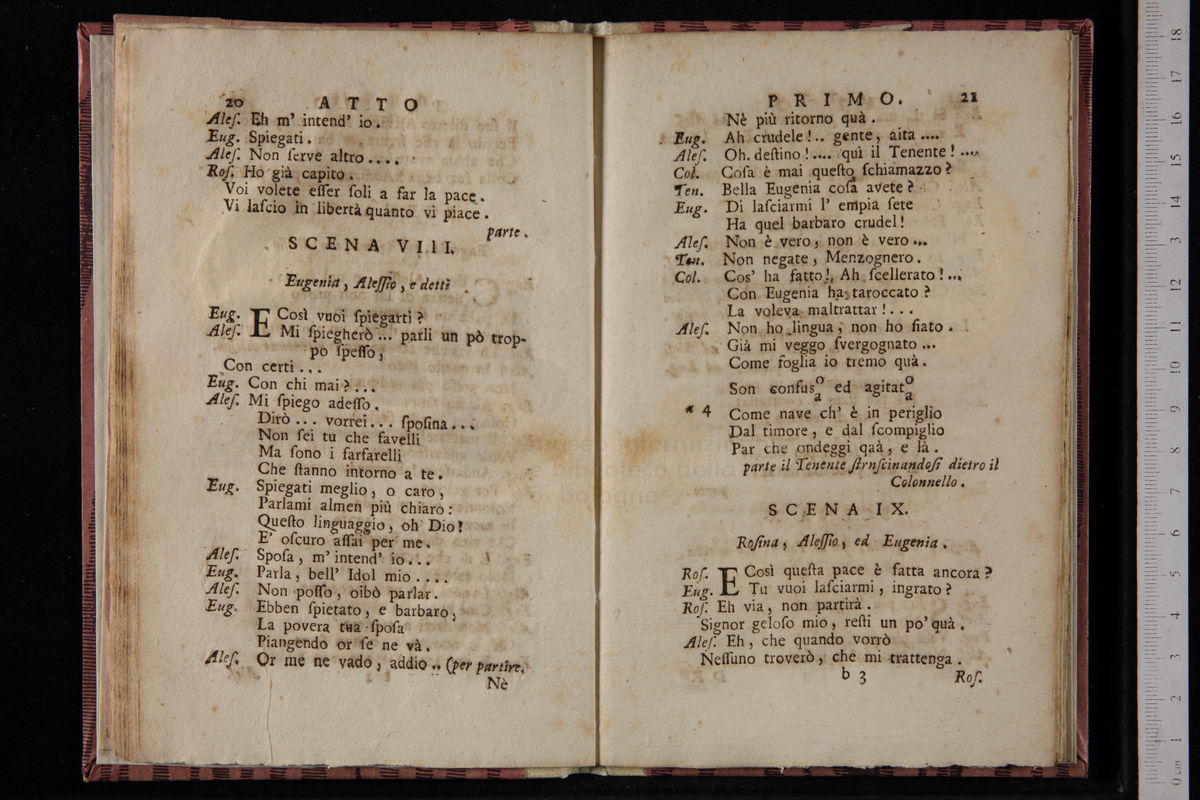 20 ATTO
Aleſ. Eh m' intend' io.
Eug. Spiegati.
Aleſ. Non ſerve altro....
Roſ. Ho già capito.
Voi volete eſſer ſoli a far la pace.
Vi laſcio in libertà quanto vi piace.
parte.
SCENA VIII.
Eugenia, Aleſſio, e detti
Eug. E Così vuoi ſpiegarti?
Aleſ. Mi ſpiegherò ... parli un pò trop-
po ſpeſſo,
Con certi ...
Eug. Con chi mai? ...
Aleſ. Mi ſpiego adeſſo.
Dirò ... vorrei... ſpoſina ...
Non ſei tu che favelli
Ma ſono i farfarelli
Che ſtanno intorno a te.
Eug. Spiegati meglio, o caro,
Parlami almen più chiaro:
Queſto linguaggio, oh Dio!
E' oſcuro aſſai per me.
Aleſ. Spoſa, m' intend' io...
Eug. Parla, bell' Idol mio ....
Aleſ. Non poſſo, oibò parlar.
Eug. Ebben ſpietato, e barbaro,
La povera tua ſpoſa
Piangendo or ſe ne và.
Aleſ. Or me ne vado, addio .. (per partire.
Nè
PRIMO. 21
Nè più ritorno quà.
Eug. Ah crudele!.. gente, aita ....
Aleſ. Oh. deſtino!.... quì il Tenente! ....
Col. Coſa è mai queſto ſchiamazzo?
Ten. Bella Eugenia coſa avete?
Eug. Di laſciarmi l' empia ſete
Ha quel barbaro crudel!
Aleſ. Non è vero, non è vero ...
Ten. Non negate, Menzognero.
Col. Cos' ha fatto!, Ah ſcellerato!...
Con Eugenia ha taroccato?
La voleva maltrattar!...
Aleſ. Non ho lingua, non ho fiato.
Già mi veggo ſvergognato ...
Come foglia io tremo quà.
Son confuſo/a ed agitato/a
* 4 Come nave ch' è in periglio
Dal timore, e dal ſcompiglio
Par che ondeggi quà, e là.
parte il Tenente ſtrnſcinandoſi dietro il
Colonnello.
SCENA IX.
Roſina, Aleſſio, ed Eugenia.
Roſ. E Così queſta pace è fatta ancora?
Eug. Tu vuoi laſciarmi, ingrato?
Roſ. Eh via, non partirà.
Signor geloſo mio, reſti un po' quà.
Aleſ. Eh, che quando vorrò
Neſſuno troverò, che mi trattenga.
b 3 Roſ.